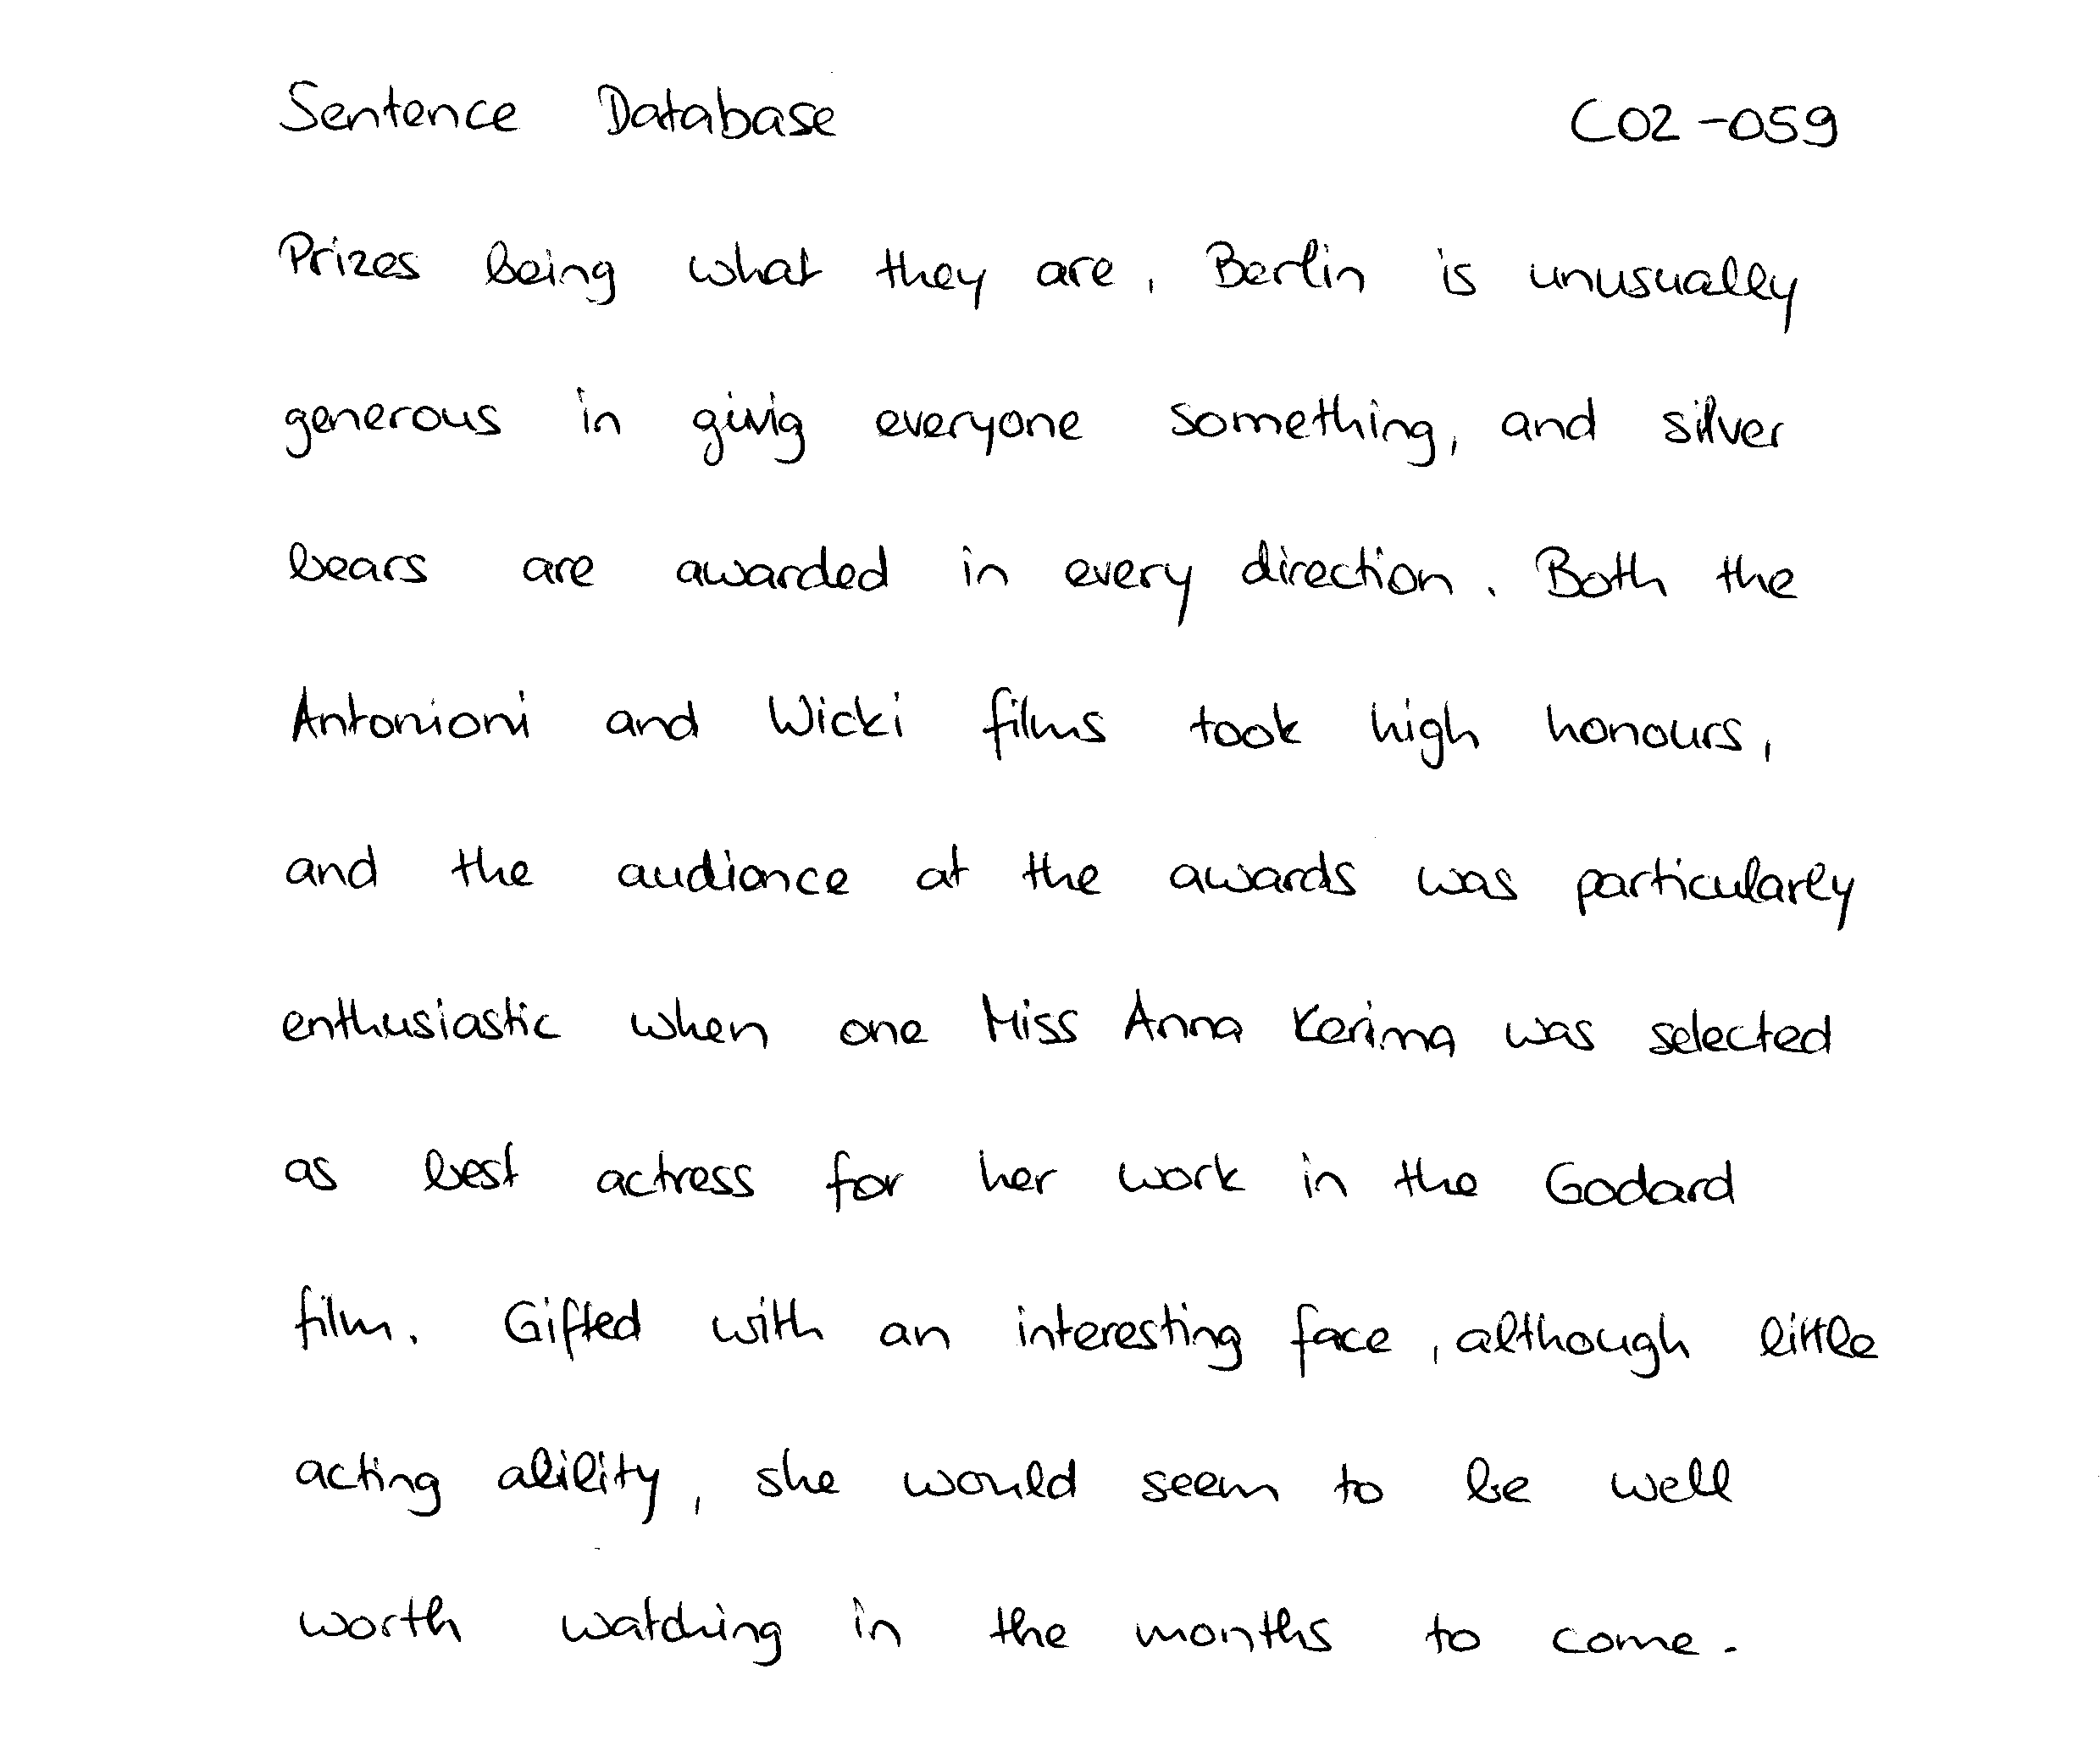 Sentence Database C02-059
Prizes being what they are, Berlin is unusually
generous in givig everyone something, and silver
bears are awarded in every direction. Both the
Antonioni and Wicki films took high honours,
and the audience at the awards was particularly
enthusiastic when one Miss Anna Kerima was selected
as best actress for her work in the Godard
film. Gifted with an interesting face, although little
acting ability, she would seem to be well
worth watching in the months to come.